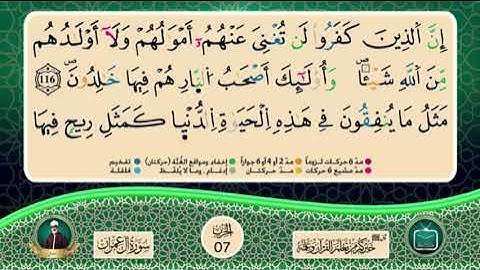 إِنَّ ٱلَّذِينَ كَفَرُوا۟ لَن تُغْنِىَ عَنْهُمْ أَمْوَٰلُهُمْ وَلَآ أَوْلَٰدُهُم
مِّنَ ٱللَّهِ شَيْـًٔا ۖ وَأُو۟لَٰٓئِكَ أَصْحَٰبُ ٱلنَّارِ هُمْ فِيهَا خَٰلِدُونَ ۖ 116
مَثَلُ مَا يُنفِقُونَ فِى هَٰذِهِ ٱلْحَيَوٰةِ ٱلدُّنْيَا كَمَثَلِ رِيحٍ فِيهَا
مدّ 6 حركات لزوماً مدّ 2 أو 4 أو 6 جوازاً إخفاء ومواقع الغُنَّة (حركتان) تفخيم
مدّ مشبع 6 حركات مدّ حركتان إدغام، وما لا يُلفظ قلقلة
سورة آل عمران
الحزب
07
خيركم من تعلم القرآن وعلمه